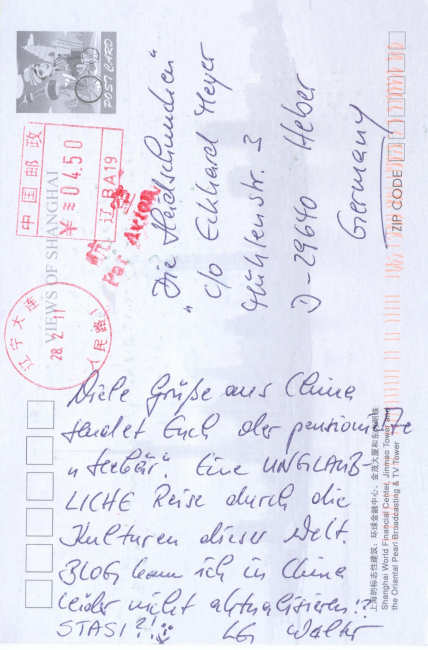 POST CARD
中国邮政
¥≡04.50
辽BA19
航空
Par Avion
VIEWS OF SHANGHAI
辽宁大连
28 2 11
人民路
"Die Heidschnucken"
c/o Eckhard Meyer
Mühlenstr. 3
D-29640 Heber
Germany
ZIP CODE
Viele Grüße aus China
sendet Euch der pensionierte
"Seebär". Eine UNGLAUB-
LICHE Reise durch die
Kulturen dieser Welt.
BLOG kann ich in China
leider nicht aktualisieren!?
STASI?!!
LG Walter
上海的标志性建筑:环球金融中心、金茂大厦和东方明珠
Shanghai World Financial Center, Jinmao Tower and
the Oriental Pearl Broadcasting & TV Tower